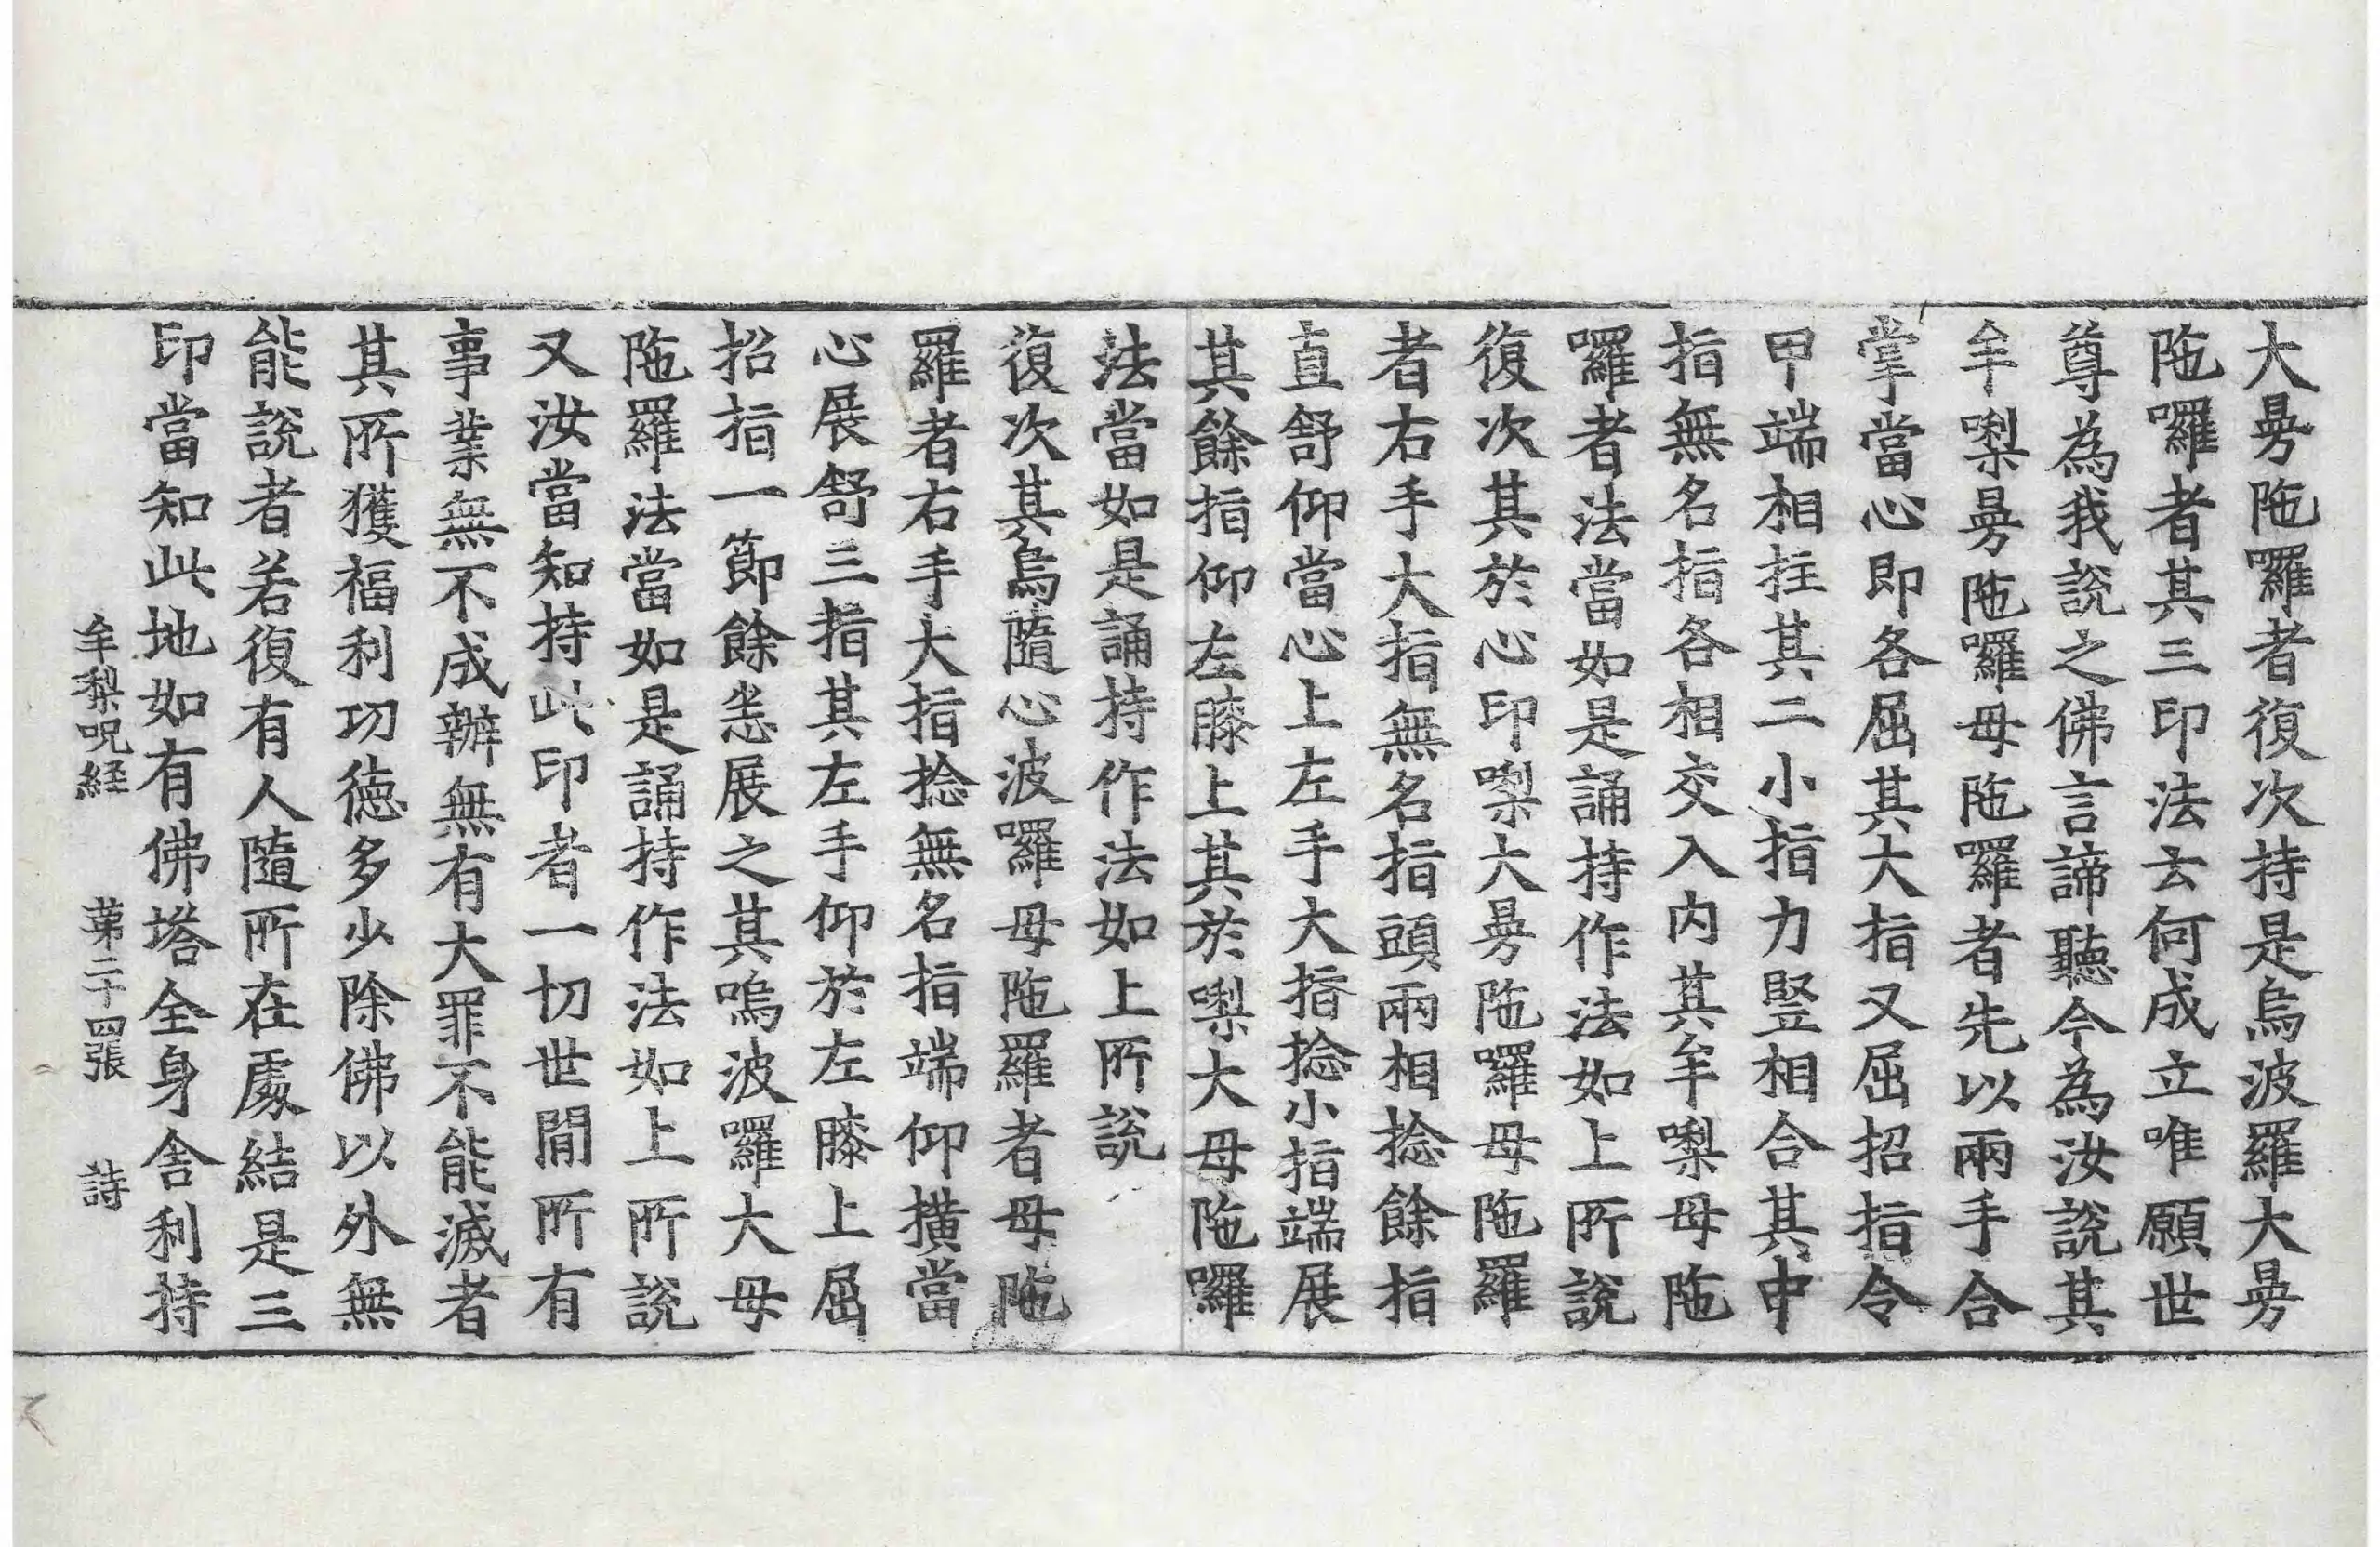 大㬅陁囉者復次持是烏波羅大㬅
陁囉者其三印法云何成立唯願世
尊為我說之佛言諦聽今為汝說其
牟㗚㬅陁囉母陁囉者先以兩手合
掌當心即各屈其大指又屈招指令
甲端相拄其二小指力豎相合其中
指無名指各相交入内其牟㗚母陁
囉者法當如是誦持作法如上所說
復次其於心印㗚大㬅陁囉母陁羅
者右手大指無名指頭兩相捻餘指
直舒仰當心上左手大指捻小指端展
其餘指仰左膝上其於㗚大母陁囉
法當如是誦持作法如上所說
復次其烏隨心波囉母陁羅者母陁
羅者右手大指捻無名指端仰橫當
心展舒三指其左手仰於左膝上屈
招指一節餘悉展之其嗚波囉大母
陁羅法當如是誦持作法如上所說
又汝當知持此印者一切世間所有
事業無不成辦無有大罪不能滅者
其所獲福利功德多少除佛以外無
能說者若復有人隨所在處結是三
印當知此地如有佛塔全身舍利持
牟梨呪経 苐二十四張 詩